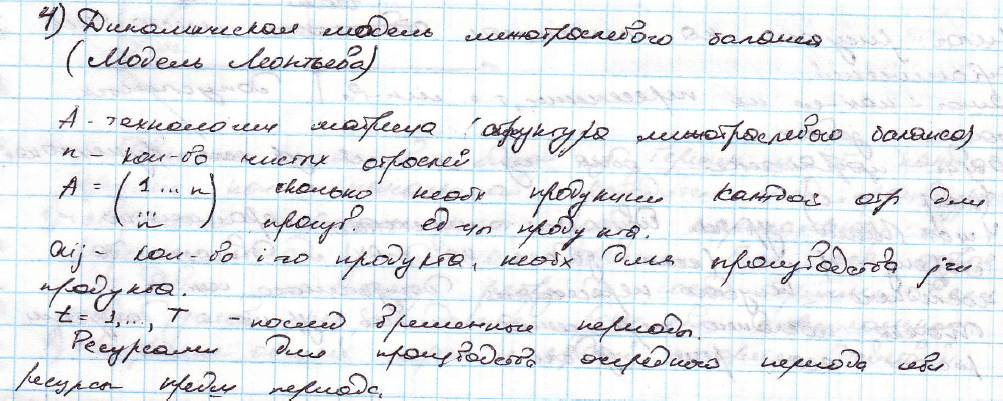 4) Динамическая модель межотраслевого баланса
(Модель Леонтьева)
A - технологич матрица (структура межотраслевого баланса)
n - кол-во чистых отраслей
A = (1 ... n) сколько необх продукции каждой отр для
... n произв. ед-цы продукта.
aij - кол-во i-го продукта, необх для производства j-го
продукта.
t = 1, ..., T - послед временные периоды.
Ресурсами для производства очередного периода явл
ресурсы предш периода.